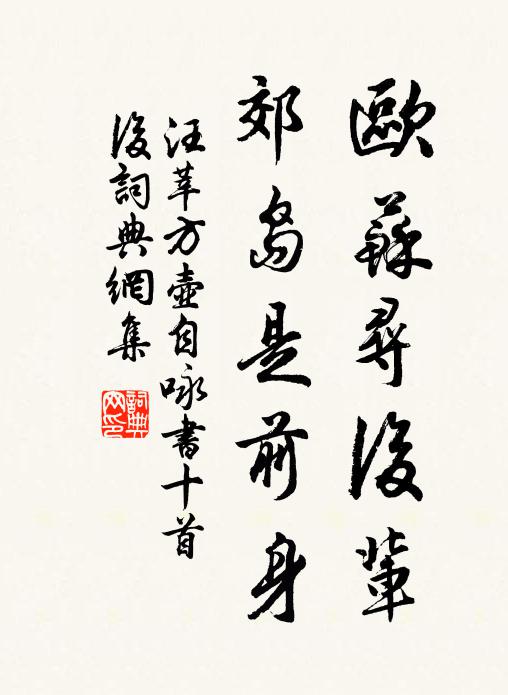 歐蘇尋後輩
郊島是前身
汪莘方壺自咏書十首
後詞典網集
詞典网印